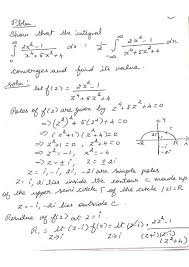 Pblm:
Show that the integral
∫₀^∞ (2x²-1)/(x⁴+5x²+4) dx = 1/2 ∫_{-∞}^∞ (2x²-1)/(x⁴+5x²+4) dx
converges and find its value
Soln: Let f(z) = (2z²-1)/(z⁴+5z²+4)
Poles of f(z) are given by z⁴+5z²+4=0
⇒ (z²)²+5(z²)+4=0
⇒ (z²+1)(z²+4)=0
⇒ z²=-1, z²=-4
⇒ z=±i, z=±2i
z=i, -i, 2i, -2i are simple poles
z=i, 2i lies inside the contour C made up
of the upper semi circle Γ of the circle |z|=R
z=-i, -2i lies outside C.
Residue of f(z) at z=i
R₁ = lt z→i (z-i) f(z) = lt z→i (z-i) (2z²-1)/((z+i)(z-i)(z²+4))